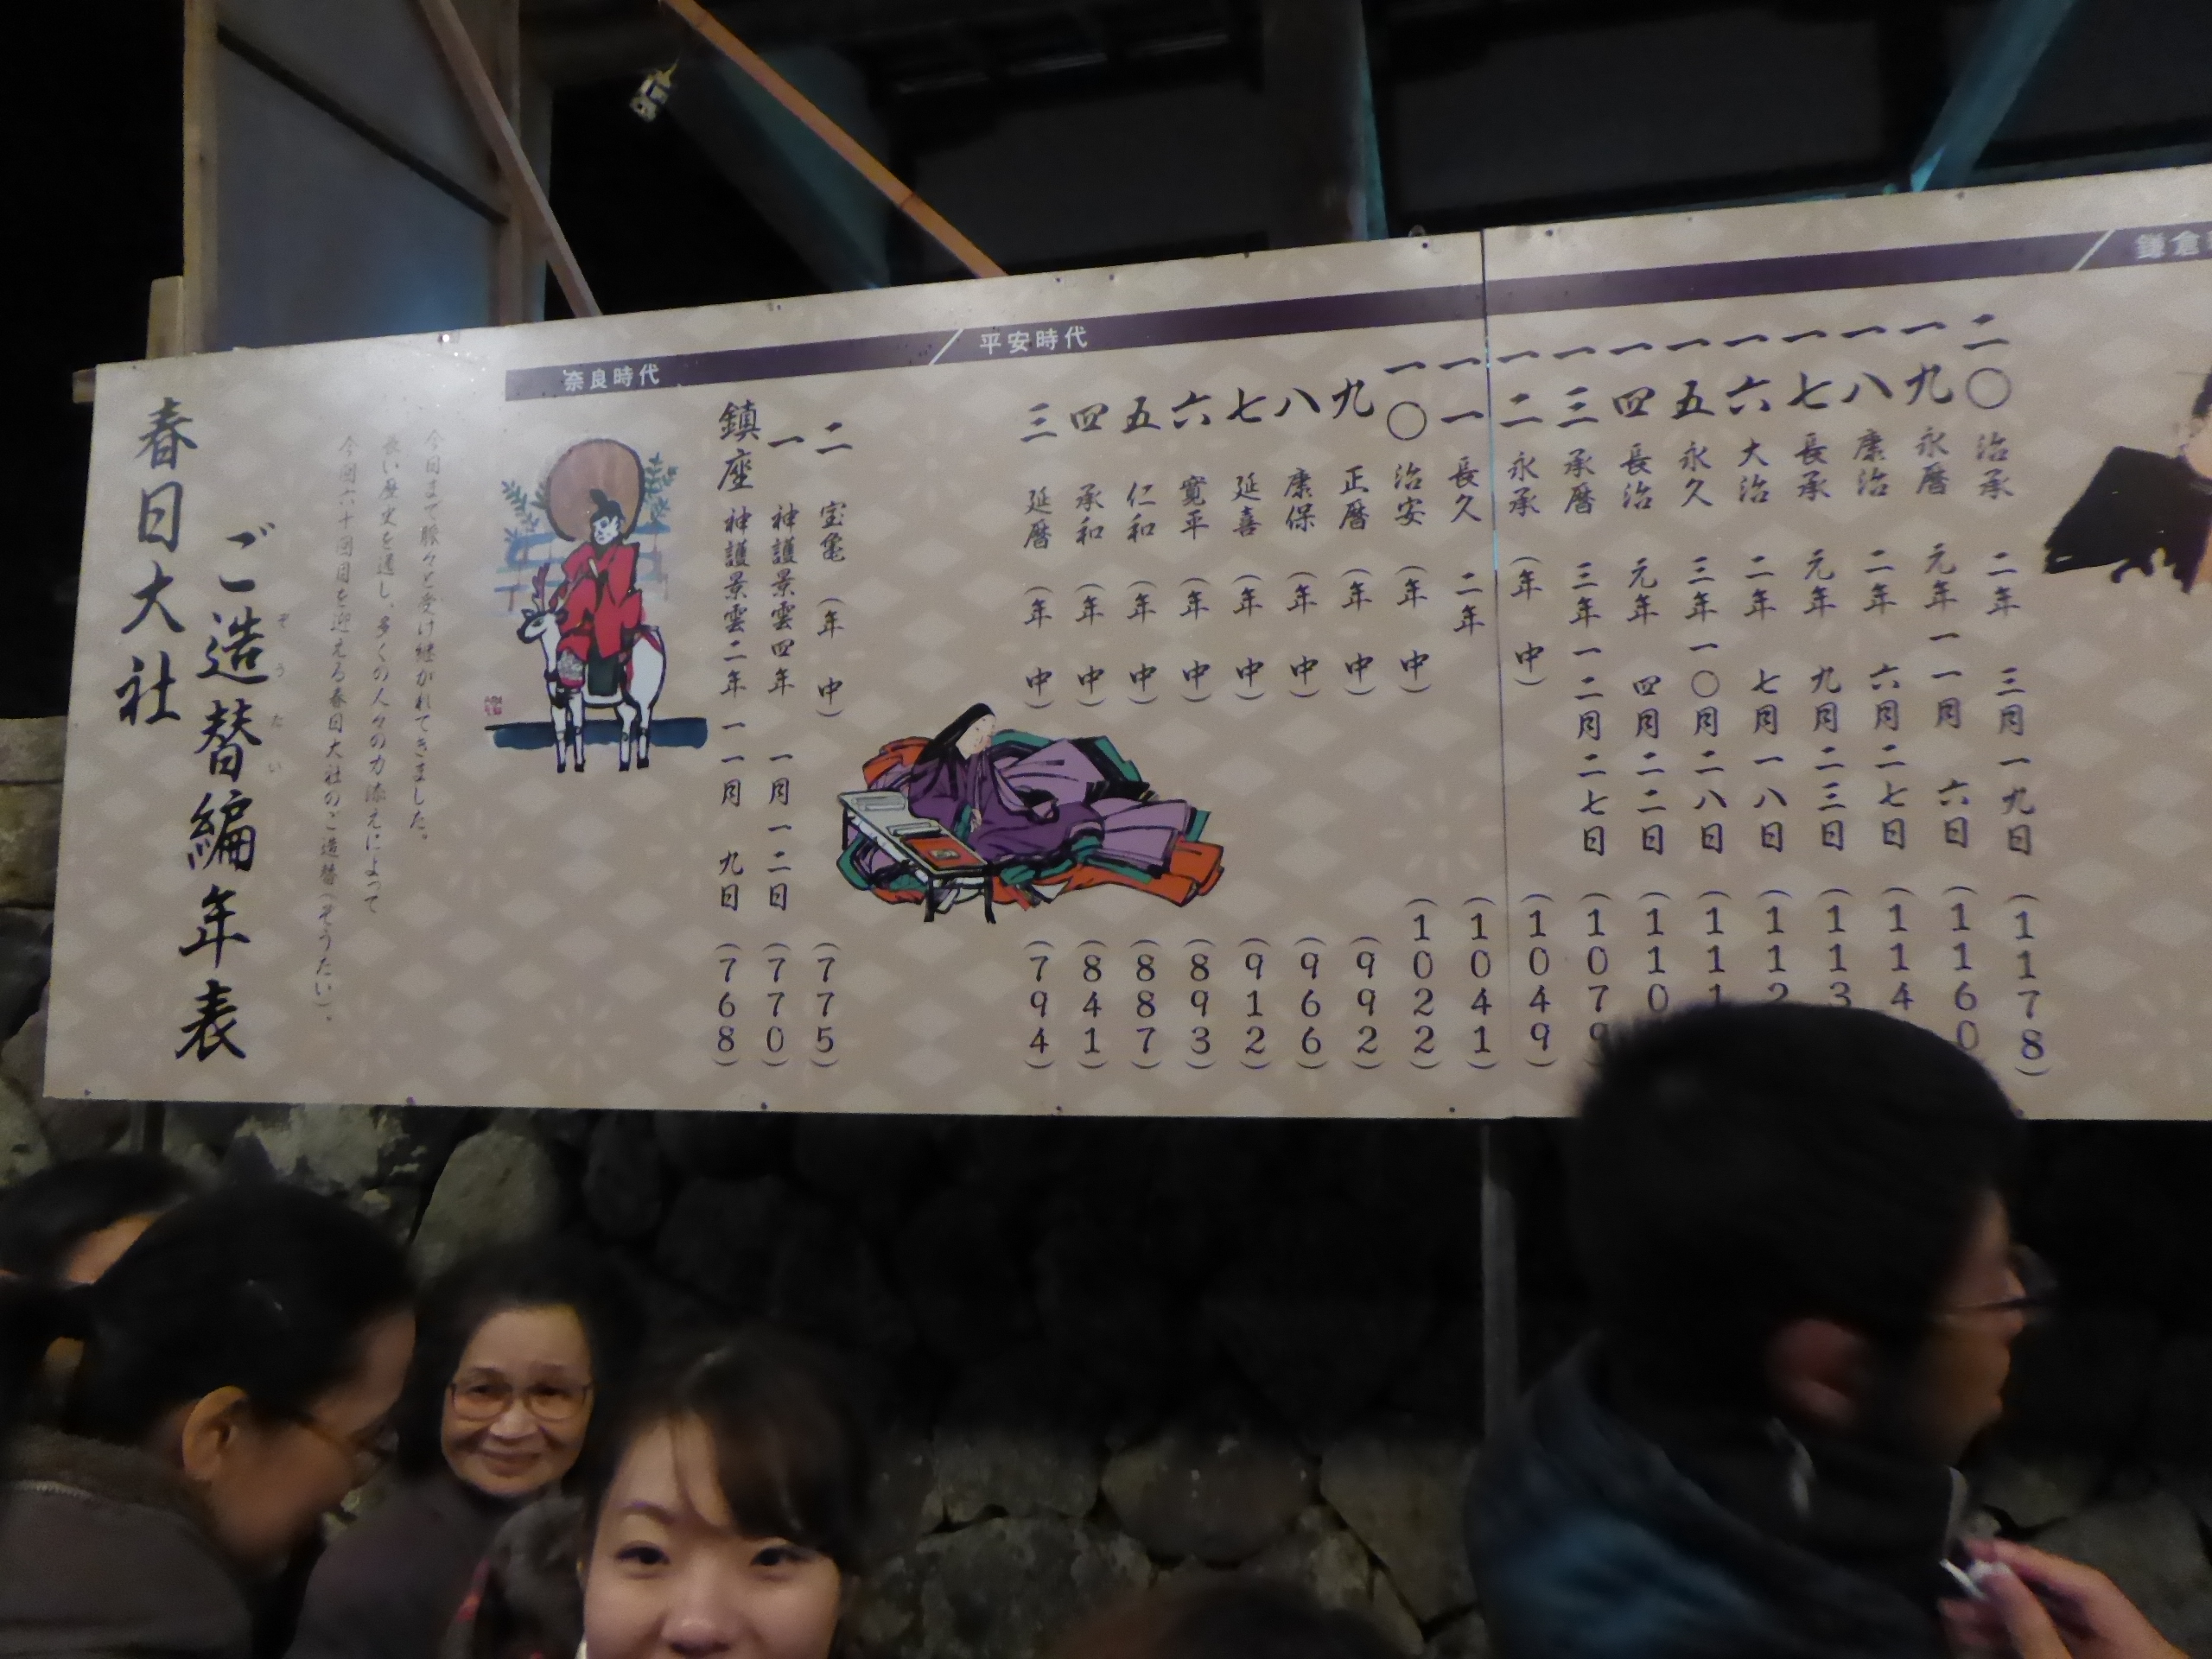 春日大社
ご造替編年表
ぞうたい
今日まで脈々と受け継がれてきました。
長い歴史を通し、多くの人々の力添えによって
今回六十回目を迎える春日大社のご造替(ぞうたい)。
奈良時代
鎮座 神護景雲二年 一一月 九日 (768)
一 神護景雲四年 一月一二日 (770)
二 宝亀 (年 中) (775)
平安時代
三 延暦 (年 中) (794)
四 承和 (年 中) (841)
五 仁和 (年 中) (887)
六 寛平 (年 中) (893)
七 延喜 (年 中) (912)
八 康保 (年 中) (966)
九 正暦 (年 中) (992)
一〇 治安 (年 中) (1022)
一一 長久 二年 (1041)
一二 永承 (年 中) (1049)
一三 承暦 三年一二月二七日 (1079
一四 長治 元年 四月二二日 (110
一五 永久 三年一〇月二八日 (111
一六 大治 二年 七月一八日 (112
一七 長承 元年 九月二三日 (113
一八 康治 二年 六月二七日 (114
一九 永暦 元年一一月 六日 (1160
二〇 治承 二年 三月一九日 (1178)
鎌倉